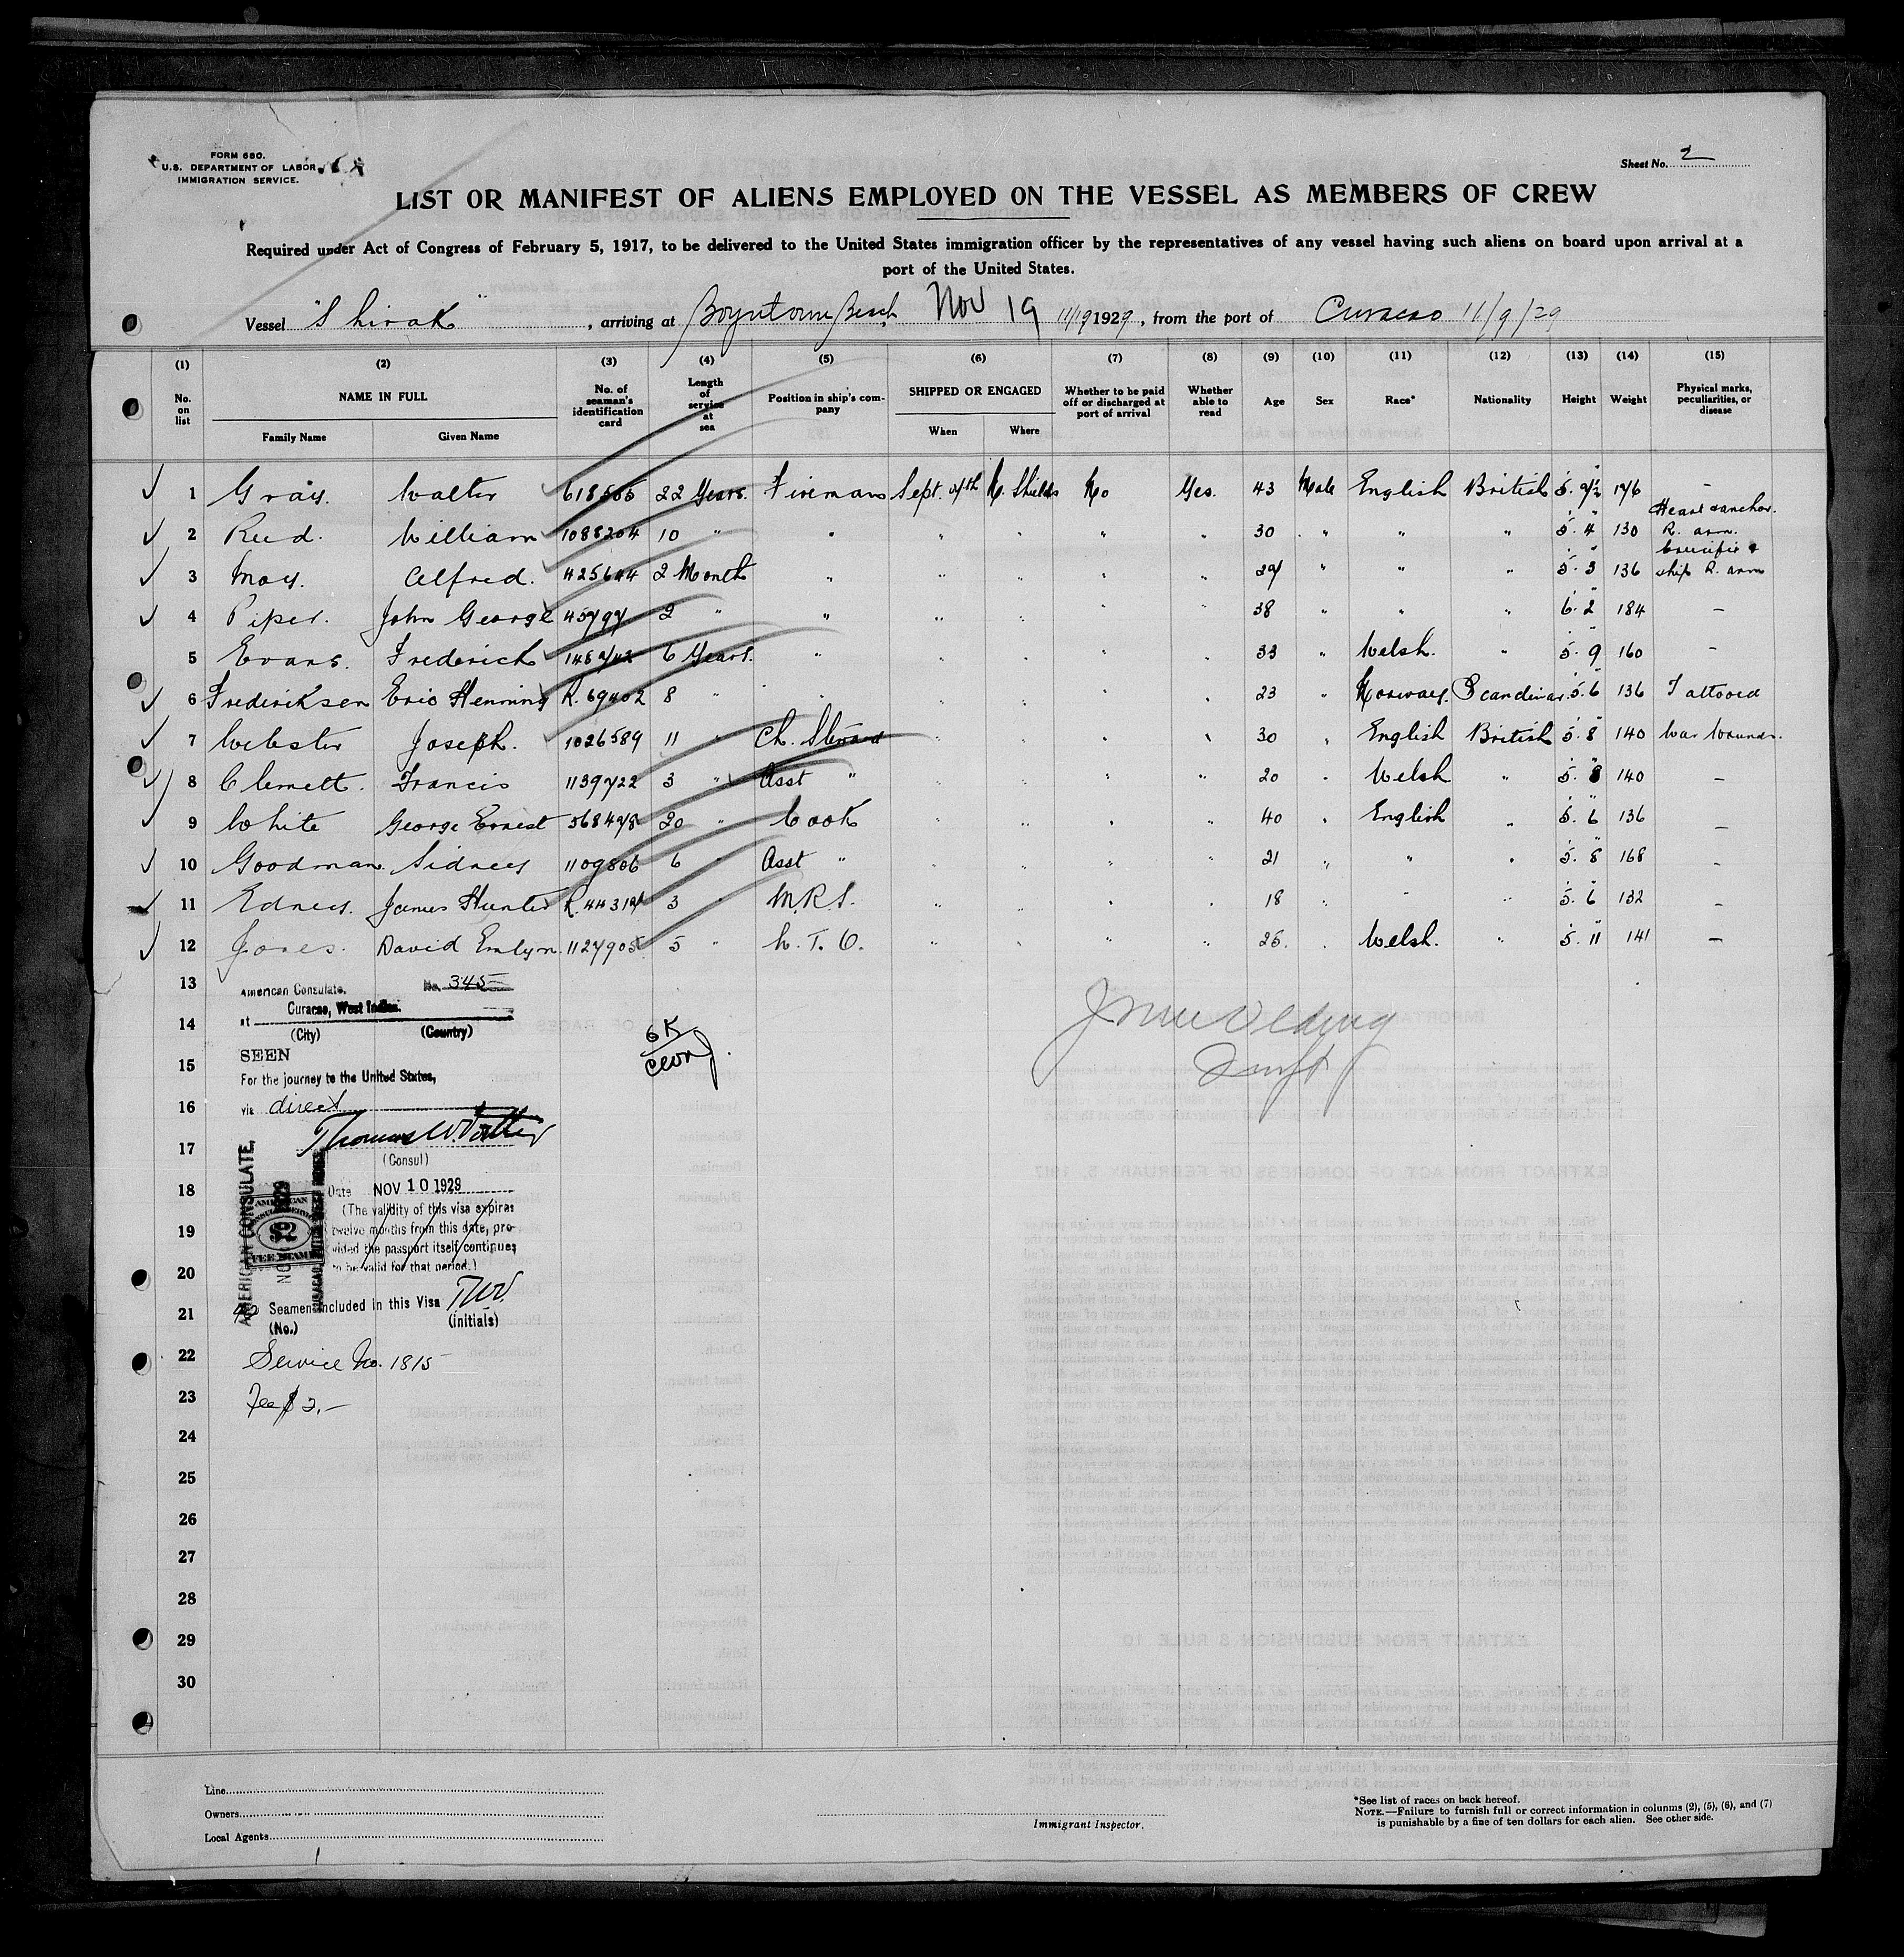 FORM 680.
U.S. DEPARTMENT OF LABOR
IMMIGRATION SERVICE.
Sheet No. 2
LIST OR MANIFEST OF ALIENS EMPLOYED ON THE VESSEL AS MEMBERS OF CREW
Required under Act of Congress of February 5, 1917, to be delivered to the United States immigration officer by the representatives of any vessel having such aliens on board upon arrival at a
port of the United States.
Vessel "Shirak", arriving at Nov 19 11/19 1929, from the port of Curacao 11/9/29
(1) (2) (3) (4) (5) (6) (7) (8) (9) (10) (11) (12) (13) (14) (15)
No. on list NAME IN FULL No. of seaman's identification card Length of service at sea Position in ship's company SHIPPED OR ENGAGED Whether to be paid off or discharged at port of arrival Whether able to read Age Sex Race* Nationality Height Weight Physical marks, peculiarities, or disease
Family Name Given Name When Where
1 Gray. Walter 618506 22 Years. Fireman Sept. 7th N. Shields No Yes. 43 Male English British 5. 9½ 176 –
2 Reed. William 1088204 10 " " " " " " 30 " " " 5. 4 130 Heart & anchor. R. arm.
3 May. Alfred. 425644 2 Month " " " " " " " " 5. 3 136 Crucifix & ship R. arm
4 Piper. John George 45797 2 " " " " " " 38 " " " 6. 2 184 –
5 Evans. Frederick 6 Years. " " " " " 33 " Welsh. " 5. 9 160 –
6 Frederiksen Eric Henning R. 69402 8 " " " " " " 23 " Norway. Scandinav. 5. 6 136 Tattooed
7 Webster Joseph. 1026589 11 " Ch. Steward " " " " 30 " English British 5. 8 140 War Wounds.
8 Clemett. Francis 1139722 3 " Asst " " " " " 20 " Welsh " 5. 8 140 –
9 White George Ernest 568478 20 " Cook " " " " 40 " English " 5. 6 136 –
10 Goodman. Sidney 1109806 6 " Asst " " " " " 21 " " " 5. 8 168 –
11 Edney. James Hunter 3 " M.R.S. " " " " 18 " " " 5. 6 132 –
12 Jones. David Emlyn. 1127905 5 " W. T. O. " " " " 25. " Welsh. " 5. 11 141 –
13
14
15
16
17
18
19
20
21
22
23
24
25
26
27
28
29
30
American Consulate. No. 345
at Curacao, West Indies.
(City) (Country)
SEEN
For the journey to the United States,
via direct
(Consul)
Date NOV 10 1929
(The validity of this visa expires
twelve months from this date, pro-
vided the passport itself continues
to be valid for that period.)
AMERICAN CONSULATE,
AMERICAN
FEE STAMP
Seamen included in this Visa TWV
(No.) (initials)
Service No. 1815
Fee $2.–
Line
Owners
Local Agents
Immigrant Inspector.
*See list of races on back hereof.
NOTE.—Failure to furnish full or correct information in columns (2), (5), (6), and (7)
is punishable by a fine of ten dollars for each alien. See other side.